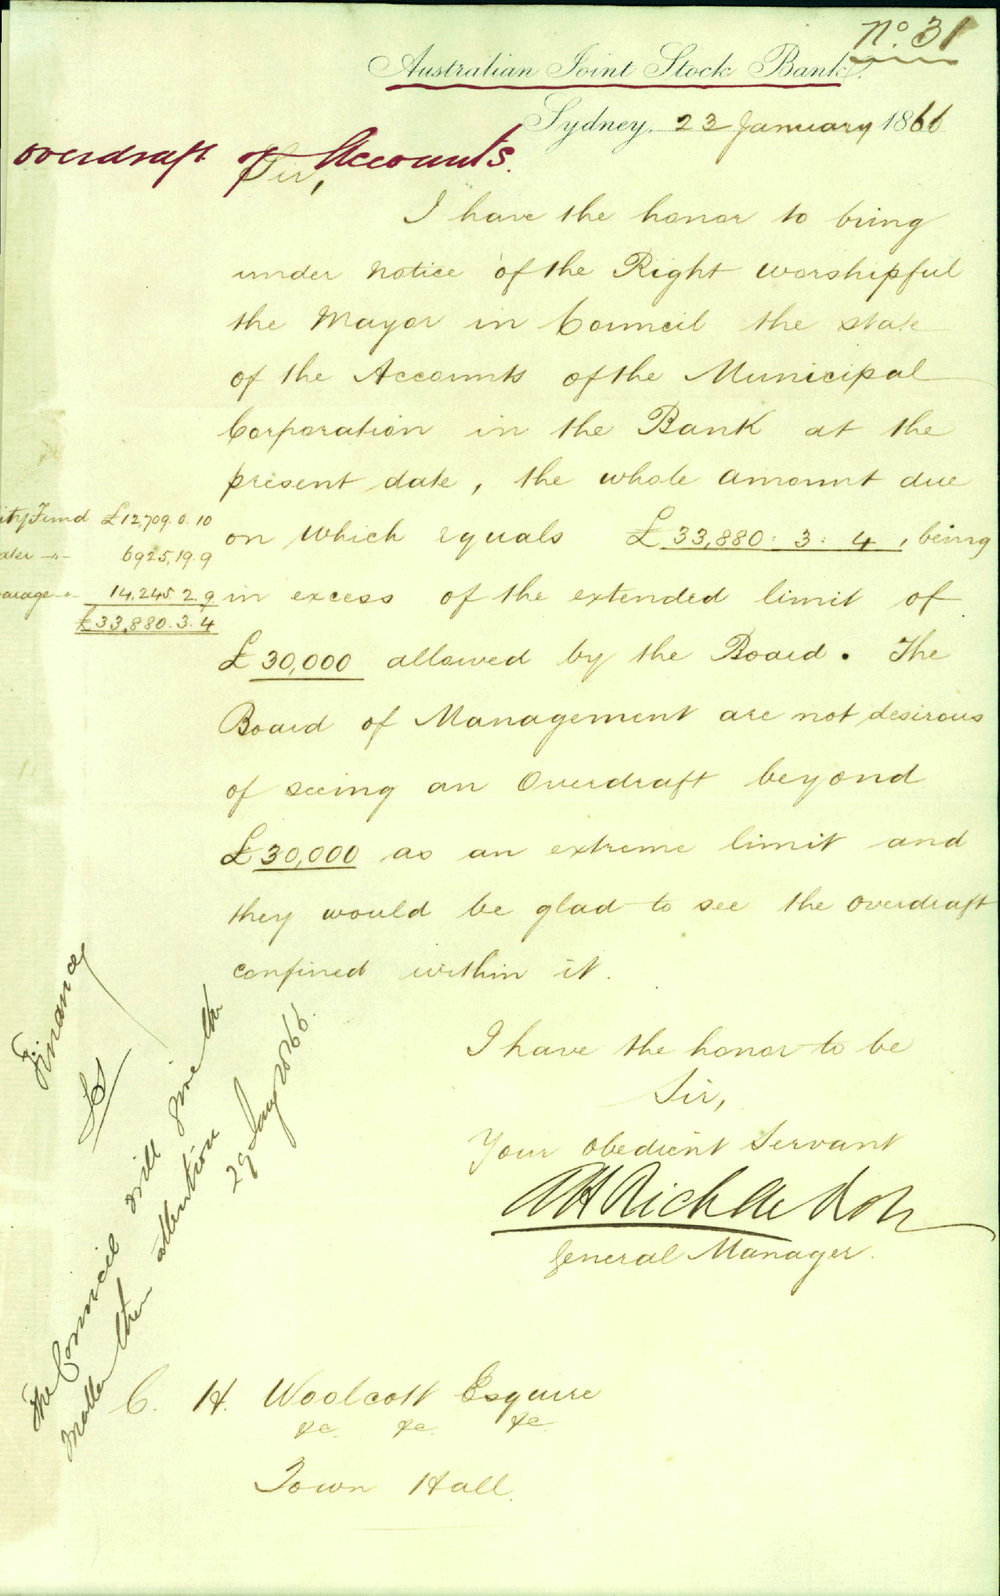 No. 31
Australian Joint Stock Bank.
Sydney, 23 January 1866
Overdraft of Accounts.
Sir,
I have the honor to bring
under notice of the Right worshipful
the Mayor in Council the state
of the Accounts of the Municipal
Corporation in the Bank at the
present date, the whole amount due
on which equals £33,880: 3: 4, being
in excess of the extended limit of
£30,000 allowed by the Board. The
Board of Management are not desirous
of seeing an Overdraft beyond
£30,000 as an extreme limit and
they would be glad to see the overdraft
confined within it.
ity Fund £12,709. 0. 10
ater -"- 6925.19.9
erage -"- 14,245. 2. 9
£33,880. 3. 4
I have the honor to be
Sir,
Your obedient Servant
AH Richardson
General Manager.
Finance
The Council will give the
matter their attention
29 Jany 1866.
C. H. Woolcott Esquire
&c. &c. &c.
Town Hall.